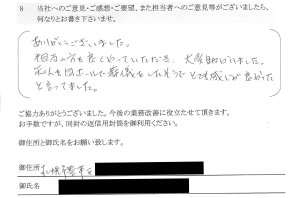 8 当社へのご意見・ご感想・ご要望、また担当者へのご意見等がございましたら、
何なりとお書き下さいませ。
ありがとうございました。
担当の方も良くやっていただき、大変助かりました。
友人も同ホールで葬儀をしたそうで とても感じが良かった
と言ってました。
ご協力ありがとうございました。今後の業務改善に役立たせて頂きます。
お手数ですが、同封の返信用封筒を御利用ください。
御住所と御氏名をお願い致します。
御住所 札幌市豊平区
御氏名